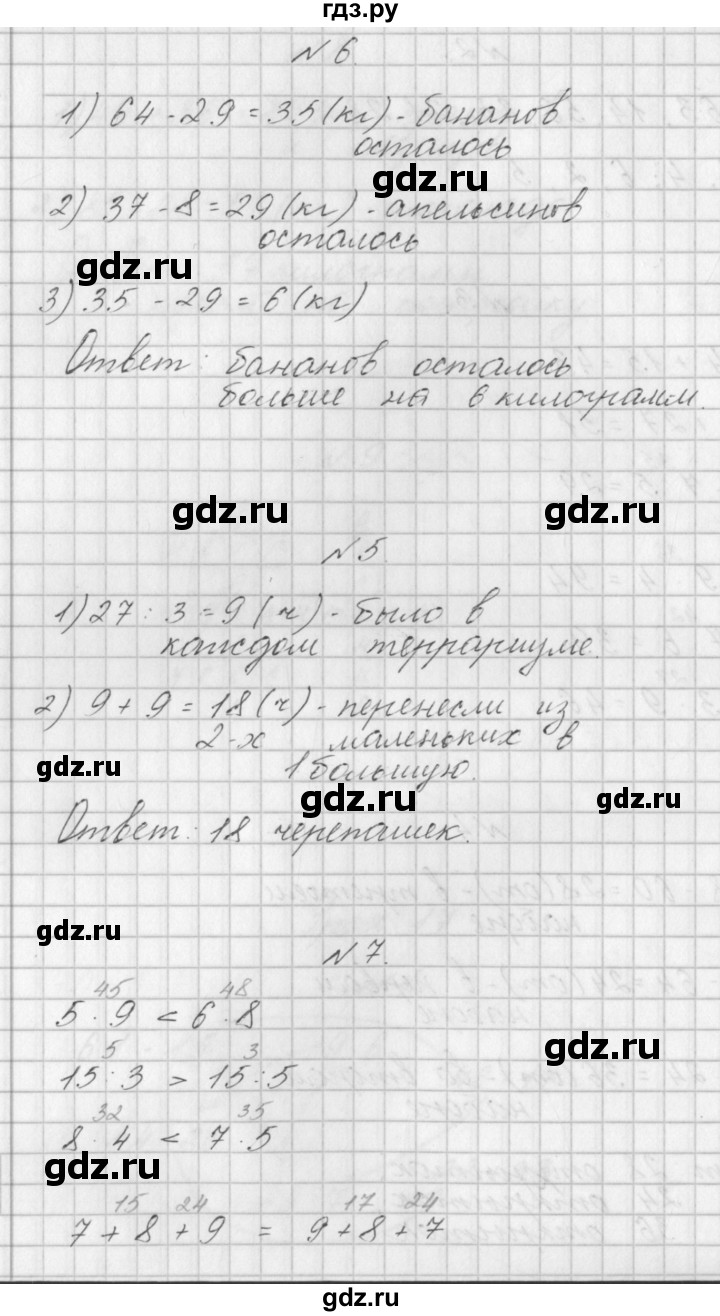 гдз.ру
№ 6
1) 64 - 29 = 35 (кг) - бананов
осталось
gdz.ru
2) 37 - 8 = 29 (кг) - апельсинов
осталось
gdz.ru
3) 35 - 29 = 6 (кг)
Ответ: бананов осталось
больше на 6 килограмм.
gdz.ru gdz.ru
№ 5.
1) 27 : 3 = 9 (ч) - было в
каждом террариуме.
2) 9 + 9 = 18 (ч) - перенесли из
2-х маленьких в
gdz.ru
1 большую.
gdz.ru gdz.ru
Ответ: 18 черепашек.
gdz.ru
№ 7.
45 48
5 · 9 < 6 · 8
gdz.ru
5 3
15 : 3 > 15 : 5
32 35
8 · 4 < 7 · 5
gdz.ru
15 24 17 24
7 + 8 + 9 = 9 + 8 + 7
gdz.ru